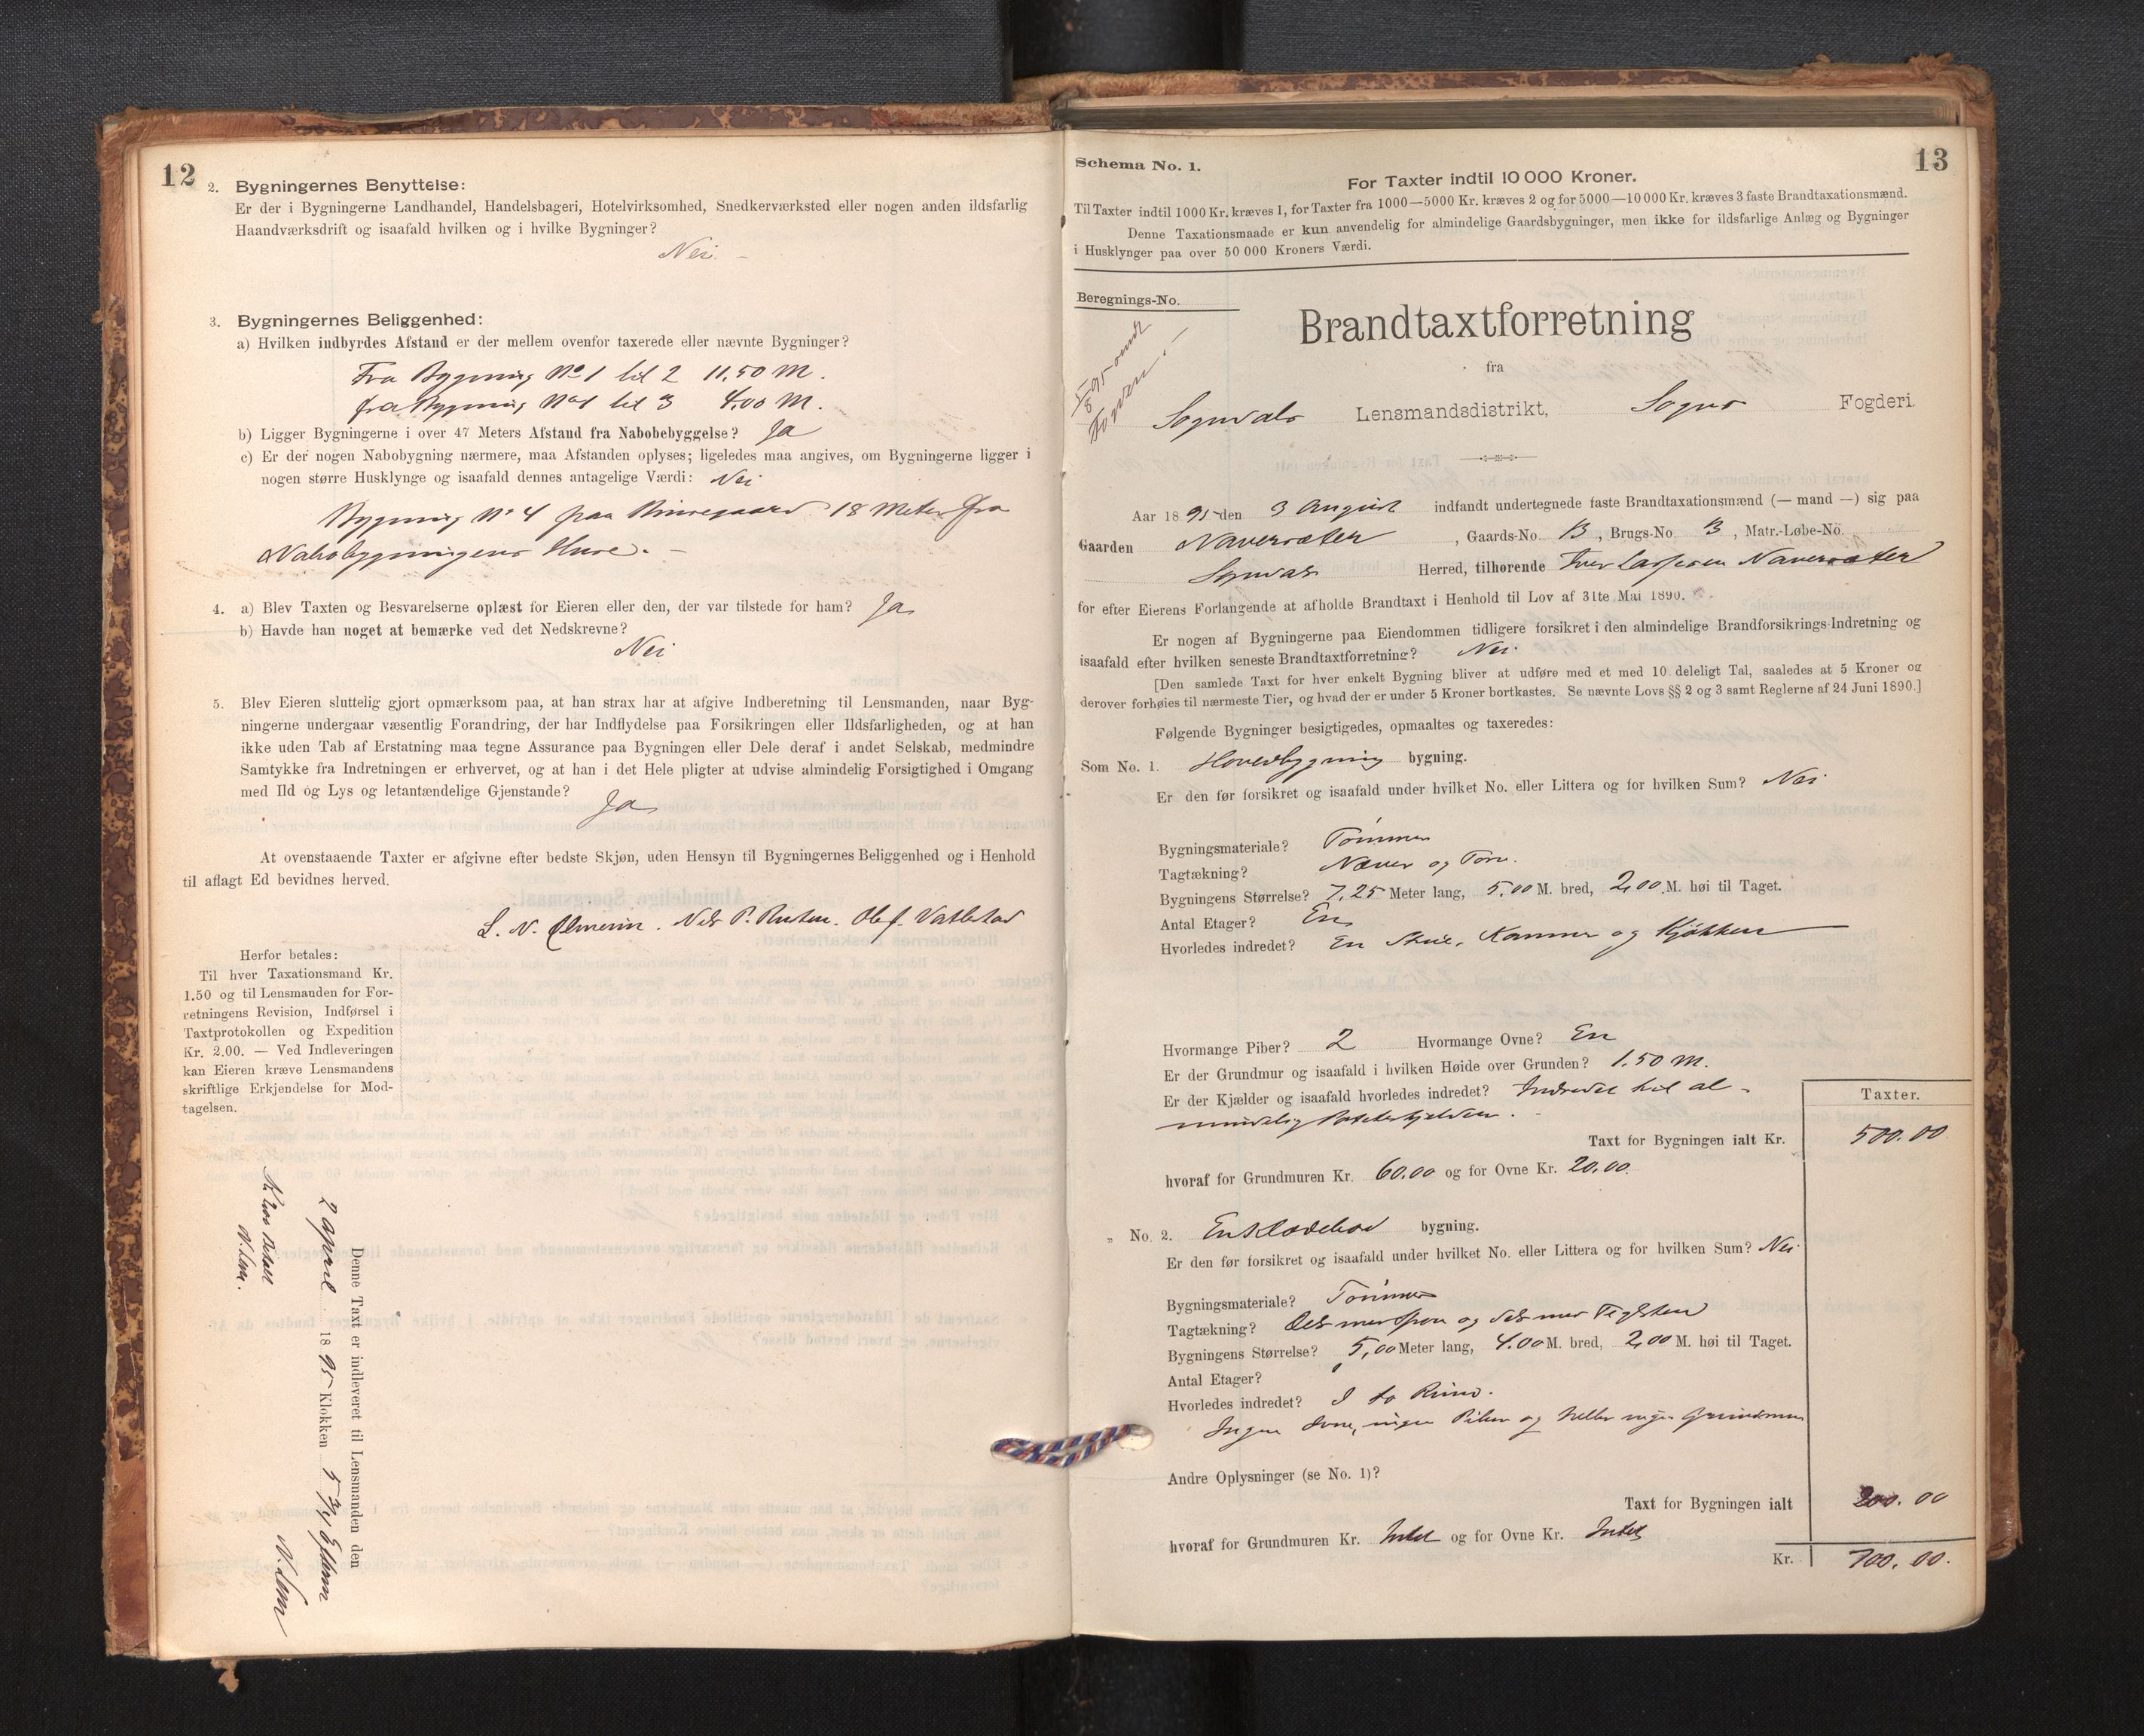 12
2. Bygningernes Benyttelse:
Er der i Bygningerne Landhandel, Handelsbageri, Hotelvirksomhed, Snedkerværksted eller nogen anden ildsfarlig
Haandværksdrift og isaafald hvilken og i hvilke Bygninger?
Nei. –
3. Bygningernes Beliggenhed:
a) Hvilken indbyrdes Afstand er der mellem ovenfor taxerede eller nævnte Bygninger?
Fra Bygning No 1 til 2 11,50 M.
fra Bygning No 1 til 3 4,00 M.
b) Ligger Bygningerne i over 47 Meters Afstand fra Nabobebyggelse? Ja
c) Er der nogen Nabobygning nærmere, maa Afstanden oplyses; ligeledes maa angives, om Bygningerne ligger i
nogen større Husklynge og isaafald dennes antagelige Værdi: Nei
Bygning No 4 paa 18 Meter fra
Nabobygningens Huse. –
4. a) Blev Taxten og Besvarelserne oplæst for Eieren eller den, der var tilstede for ham? Ja
b) Havde han noget at bemærke ved det Nedskrevne?
Nei
5. Blev Eieren sluttelig gjort opmærksom paa, at han strax har at afgive Indberetning til Lensmanden, naar Byg-
ningerne undergaar væsentlig Forandring, der har Indflydelse paa Forsikringen eller Ildsfarligheden, og at han
ikke uden Tab af Erstatning maa tegne Assurance paa Bygningen eller Dele deraf i andet Selskab, medmindre
Samtykke fra Indretningen er erhvervet, og at han i det Hele pligter at udvise almindelig Forsigtighed i Omgang
med Ild og Lys og letantændelige Gjenstande?
Ja
At ovenstaaende Taxter er afgivne efter bedste Skjøn, uden Hensyn til Bygningernes Beliggenhed og i Henhold
til aflagt Ed bevidnes herved.
L. N. Nils P. Olef. Vatlestad
Herfor betales:
Til hver Taxationsmand Kr.
1.50 og til Lensmanden for For-
retningens Revision, Indførsel i
Taxtprotokollen og Expedition
Kr. 2.00. — Ved Indleveringen
kan Eieren kræve Lensmandens
skriftlige Erkjendelse for Mod-
tagelsen.
Denne Taxt er indleveret til Lensmanden den
2 april 1895 Klokken 5
13
Schema No. 1.
For Taxter indtil 10 000 Kroner.
Til Taxter indtil 1000 Kr. kræves 1, for Taxter fra 1000—5000 Kr. kræves 2 og for 5000—10 000 Kr. kræves 3 faste Brandtaxationsmænd.
Denne Taxationsmaade er kun anvendelig for almindelige Gaardsbygninger, men ikke for ildsfarlige Anlæg og Bygninger
i Husklynger paa over 50 000 Kroners Værdi.
Beregnings-No.
Brandtaxtforretning
fra
Sogndals Lensmandsdistrikt, Sogns Fogderi.
Aar 1895 den 3 August indfandt undertegnede faste Brandtaxationsmænd (— mand —) sig paa
Gaarden Naversæter, Gaards-No. 13, Brugs-No 3, Matr.-Løbe-No.
Sogndals Herred, tilhørende Iver Larssen Naversæter
for efter Eierens Forlangende at afholde Brandtaxt i Henhold til Lov af 31te Mai 1890.
Er nogen af Bygningerne paa Eiendommen tidligere forsikret i den almindelige Brandforsikrings-Indretning og
isaafald efter hvilken seneste Brandtaxtforretning? Nei
[Den samlede Taxt for hver enkelt Bygning bliver at udføre med et med 10 deleligt Tal, saaledes at 5 Kroner og
derover forhøies til nærmeste Tier, og hvad der er under 5 Kroner bortkastes. Se nævnte Lovs §§ 2 og 3 samt Reglerne af 24 Juni 1890.]
Følgende Bygninger besigtigedes, opmaaltes og taxeredes:
Som No. 1. Hovedbygning bygning.
Er den før forsikret og isaafald under hvilket No. eller Littera og for hvilken Sum? Nei
Bygningsmateriale? Tømmer
Tagtækning? Næver og Torv.
Bygningens Størrelse? 7,25 Meter lang, 5,00 M. bred, 2,00 M. høi til Taget.
Antal Etager? En
Hvorledes indredet? En Stue, Kammer og Kjøkken
Hvormange Piber? 2 Hvormange Ovne? En
Er der Grundmur og isaafald i hvilken Høide over Grunden? 1.50 M.
Er der Kjælder og isaafald hvorledes indredet? Indredet til al-
mindelig Potetkjelder.
Taxter.
Taxt for Bygningen ialt Kr. 500.00
hvoraf for Grundmuren Kr. 60.00 og for Ovne Kr. 20.00
„ No. 2. En Kladebod bygning.
Er den før forsikret og isaafald under hvilket No. eller Littera og for hvilken Sum? Nei
Bygningsmateriale? Tømmer
Tagtækning? Dels med Spon og dels med Teglsten
Bygningens Størrelse? 5,00 Meter lang, 4.00 M. bred, 2,00 M. høi til Taget.
Antal Etager?
Hvorledes indredet? I to Rum.
Ingen Ovne, ingen Piber og heller ingen Grundmur
Andre Oplysninger (se No. 1)?
Taxt for Bygningen ialt 200.00
hvoraf for Grundmuren Kr. Intet og for Ovne Kr. Intet
Kr. 700.00.